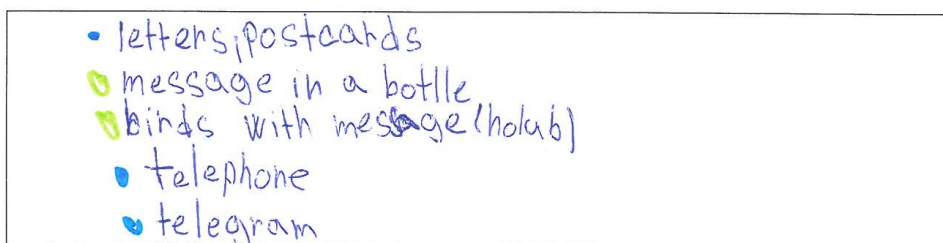 • letters, postcards
• message in a botlle
• birds with message (holub)
• telephone
• telegram